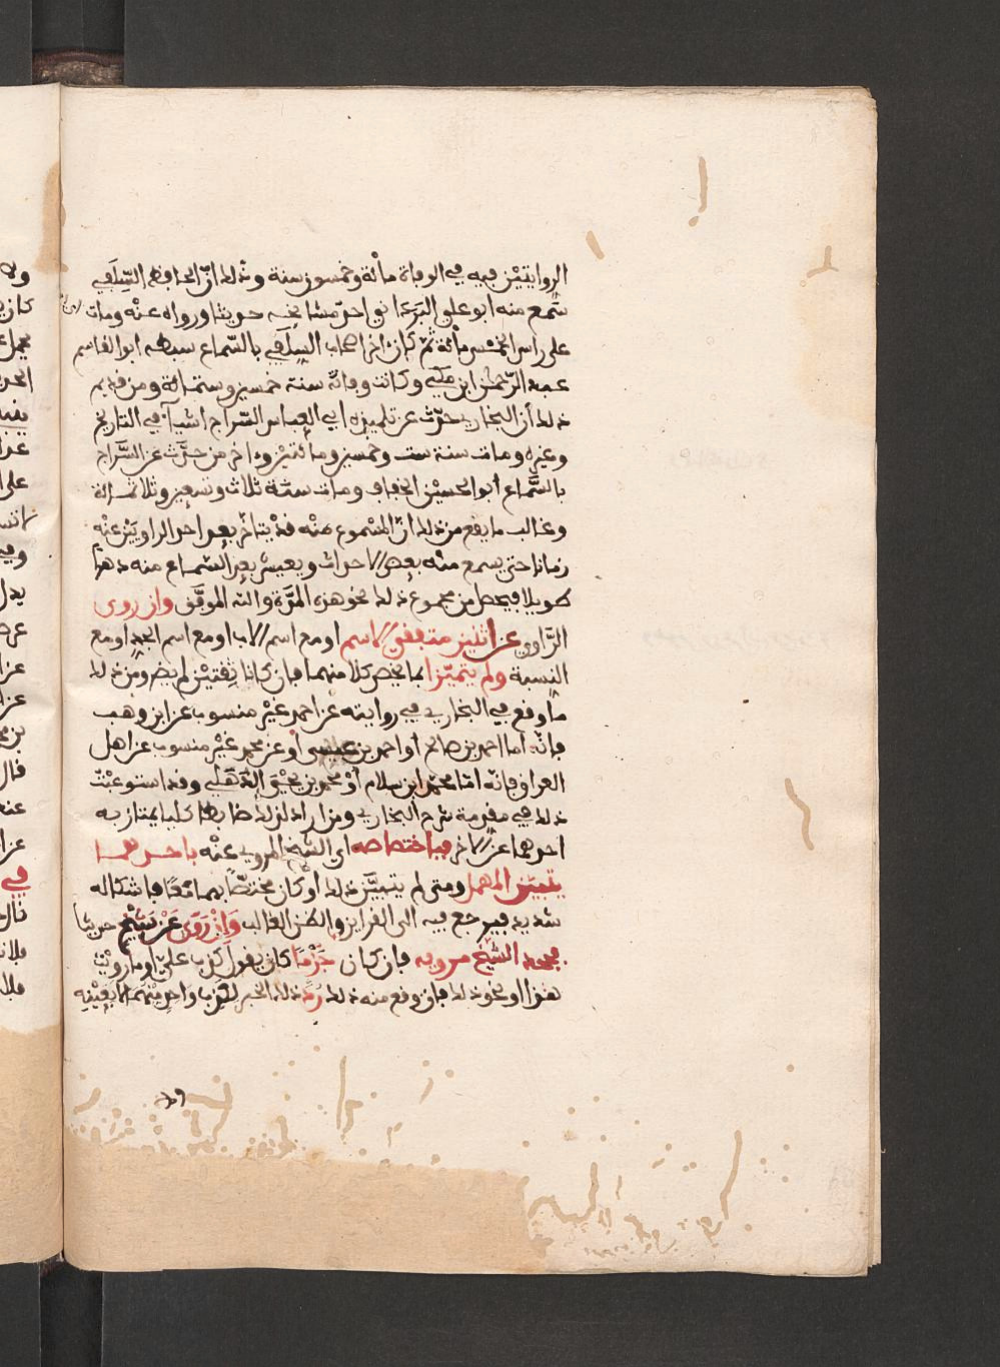 الروايتين فيه في الوفاة مائة وخمسون سنة وذلك ان الحافظ السِّلَفي
سَمع منه ابو علي البَرَداني احد مشايخه حديثا ورواه عنه ومات
على راس الخمس مائة ثم كان اخر اصحاب السِّلَفي بالسَّماع سبطه ابو القاسم
عبد الرّحمن ابن مَكّي وكانت وفاته سنة خمسين وستمائة ومن قديم
ذلك أن البخاري حدّث عن تلميذه ابي العباس السّراج اشياء في التاريخ
وغيره ومات سنة ست وخمسين ومائتين وءاخر من حدَّث عن السَّراج
بالسَّماع أبو الحسين الخفاف ومات سنة ثلاث وتسعين وثلاثمائة
وغالب ما يقع من ذلك انّ المسْموع منْه قدْ يتأخر بعد احد الراويَيْن عنْه
زمانا حتى يسمع منْه بعض الاحداث ويعيش بعد السّماع منه دهرا
طويلا فيحصل من مجموع ذلك نحو هذه المدّة والله الموفّق وان روى
الرّاوي عن اثنين متفقي الاسم او مع اسم الاب او مع اسم الجد او مع
النسبة ولم يتميّزا بما يخص كلا منهما فان كانا ثِقتيْن لم يضر ومن ذلك
ما وقع في البخاري في روايته عن احمد غيْر منسوب عن ابن وهب
فانّه اما احمد بن صالح أو احمد بن عيسى أو عن محمد غيْر منسوب عن اهل
العراق فانّه امّا محمّد ابن سلام أوْ محمد بن يحْيَى الذّهَلي وقد استوعبْت
ذلك في مقدمة شرح البخاري ومن اراد لذلك ضابطا كليا يمتاز به
احدهما عن الاخر فباختصاصه اي الشيخ المروي عنْه باحدهما
يتبيّن المهمل ومتى لم يتبيَّن ذلك أو كان مختصّا بهما معًا فاشكاله
شديد فيرجع فيه الى القراين والظن الغالب وَإِنْ رَوَى عَنْ شَيْخ حديثا
فجحد الشَّيْخ مرويه فان كان جَزْمًا كان يقول كذب عليّ او ما رويْت
هذا او نحو ذلك فان وقع منه ذلك رُدّ ذلك الخبر لكذب واحد منهما لا بعيْنِه